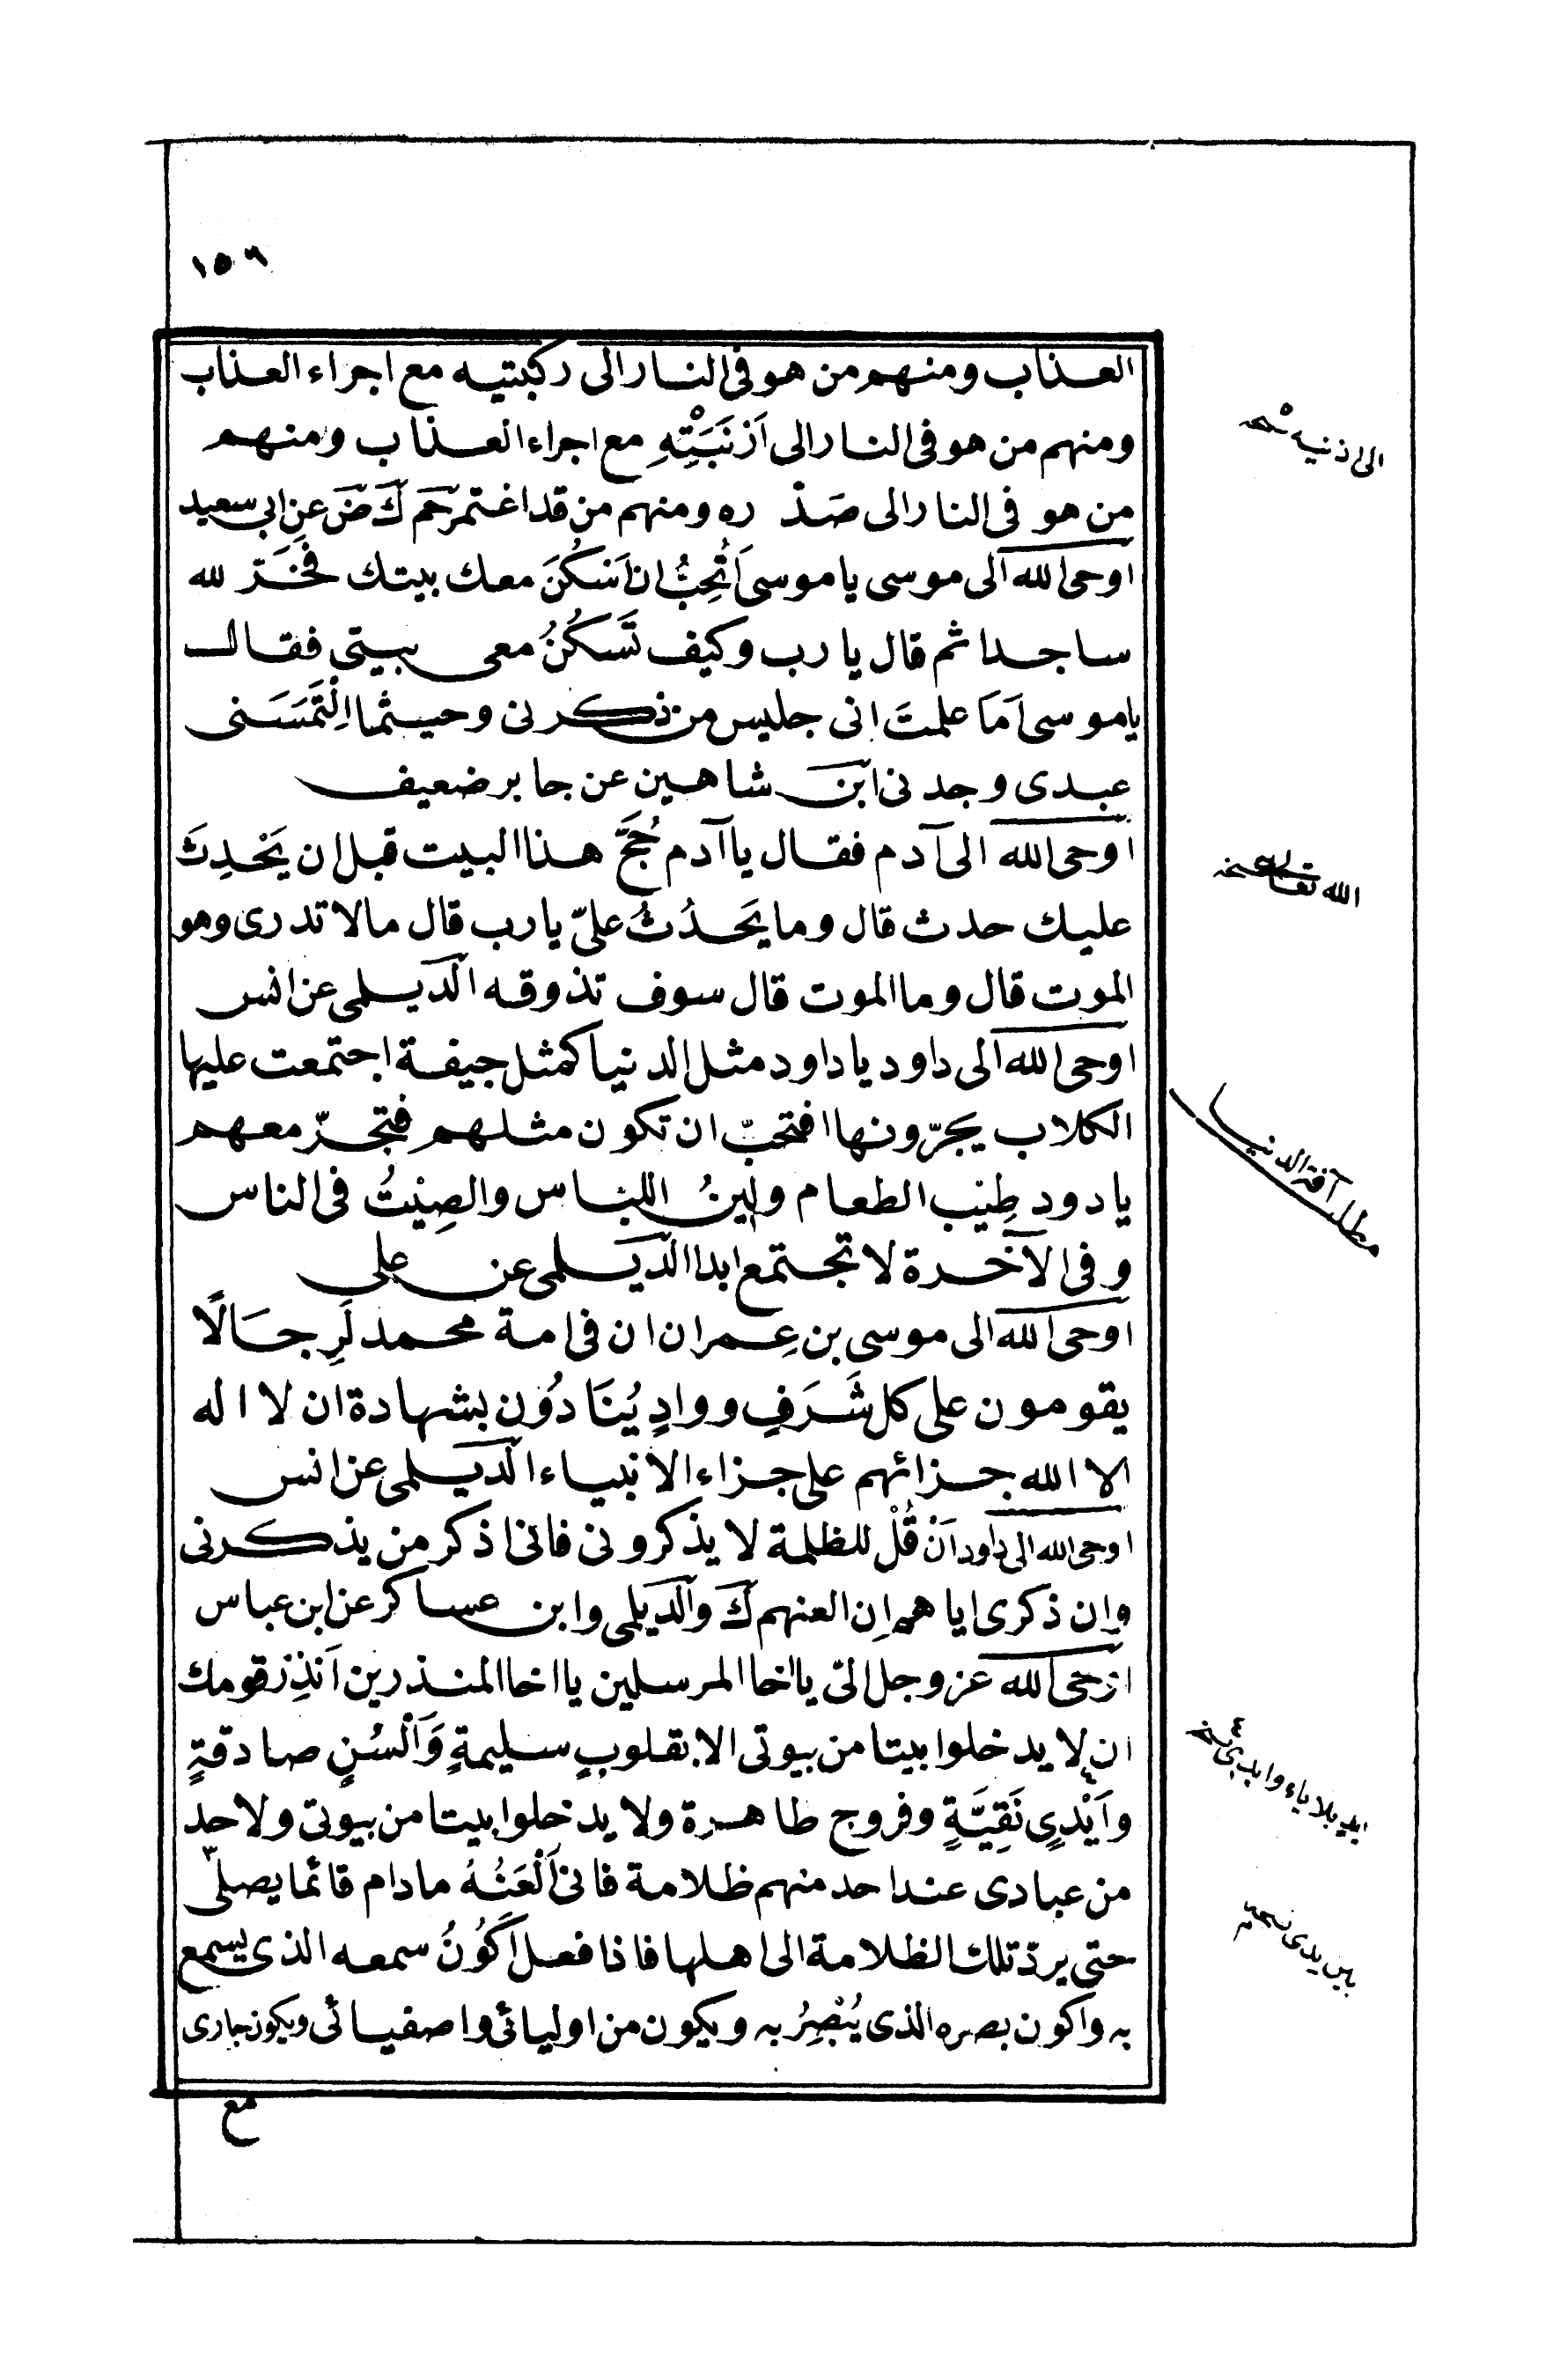 ١٥٦
العذاب ومنهم من هو فى النار الى ركبتيه مع اجراء العذاب
ومنهم من هو فى النار الى اَرْنَبَتِهِ مع اجراء العذاب ومنهم
من هو فى النار الى صَدْره ومنهم من قد اغتمر حم ك ض عن ابى سعيد
اوحى الله الى موسى يا موسى اَتُحِبُّ ان اَسْكُنَ معك بيتك فَخَرَّ لله
ساجدا ثم قال يا رب وكيف تَسكُنُ معى بيتى فقال
يا موسى اَمَا علمتَ انى جليس من ذكرنى وحيثما اِلْتَمَسَنى
عبدى وجدنى ابن شاهين عن جابر ضعيف
اوحى الله الى آدم فقال يا آدم حُجَّ هذا البيت قبل ان يَحْدِثَ
عليك حدث قال وما يَحدُثُ علىّ يا رب قال مالا تدرى وهو
الموت قال وما الموت قال سوف تذوقه الديلمى عن انس
اوحى الله الى داود يا داود مثل الدنيا كمثل جيفة اجتمعت عليها
الكلاب يجرّونها افتحبّ ان تكون مثلهم فتجرّ معهم
يا دود طِيْب الطعام ولينُ اللباس والصِيْتُ فى الناس
وفى الآخرة لا تجتمع ابدا الديلمى عن على
اوحى الله الى موسى بن عِمران ان فى امة محمد لَرِجَالًا
يقومون على كل شَرَفٍ ووادٍ يُنَادُون بشهادة ان لا اله
الا الله جزائهم على جزاء الانبياء الديلمى عن انس
اوحى الله الى داود اَنْ قُلْ للظلمة لا يذكرونى فانى اذكر من يذكرنى
وان ذكرى اياهم اِن العنهم ك والديلمى وابن عساكر عن ابن عباس
اوحى الله عز وجل الىّ يا اخا المرسلين يا اخا المنذرين اَنذِر قومك
ان لا يدخلوا بيتا من بيوتى الا بقلوبٍ سليمةٍ وَاَلْسُنٍ صادقةٍ
واَيْدٍى نَقِيَّةٍ وفروج طاهرة ولا يدخلوا بيتا من بيوتى ولاحد
من عبادى عند احد منهم ظلامة فانى اَلْعَنُهُ مادام قائما يصلى
حتى يردّ تلك الظلامة الى اهلها فاذا فعل اَكُونُ سمعه الذى يسمع
به واكون بصره الذى يُبْصِرُ به ويكون من اوليائى واصفيائى ويكون جارى
مع
الى اذنيه نسخه
الله تعالى نسخه
مطلب آفة الدنيا
ايد بلا ياء وايدى نسخه
بين يدى نسخه